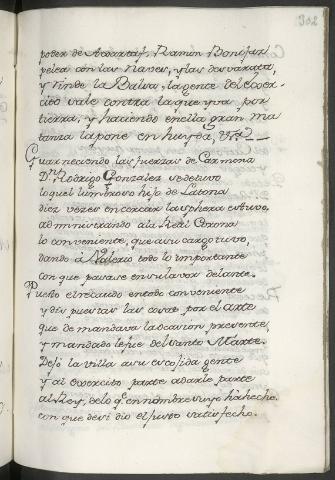 302
poder de Axartaf, Ramon Bonifaz
pelea con las naues, y las desvarata,
y rinde la Balsa, la gente del exer-
cito sale contra la que yva por
tierra, y haciendo en ella gran ma
tanza la pone en huyda,
Guarneciendo las fuerzas de Carmona
Dn Rodrigo Gonzalez se detuvo
lo que el lumbroso hijo de Latona
diez vezes en cercar la sphera estuvo,
administrando a la Real Corona
lo conveniente, que a su cargo tuvo,
dando á Valerio todo lo importante
con que pasase en su labor delante.
Puesto el recaudo en todo conveniente
y dispuestas las cosas por el arte
que demandava la ocasion presente,
y mandado le fue del santo Marte.
Dejó la villa a su escojida gente
y al exercito parte a darle parte
al Rey, de lo q. en nombre suyo ha hecho
con que devidio el justo satisfecho.